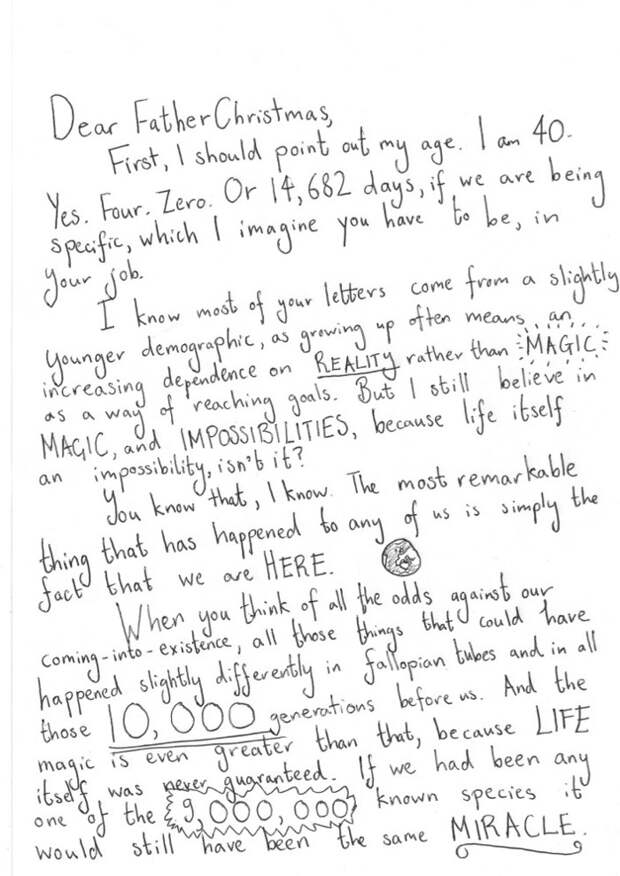 Dear Father Christmas,
First, I should point out my age. I am 40.
Yes. Four. Zero. Or 14,682 days, if we are being
specific, which I imagine you have to be, in
your job.
I know most of your letters come from a slightly
younger demographic, as growing up often means an
increasing dependence on REALITY rather than MAGIC
as a way of reaching goals. But I still believe in
MAGIC, and IMPOSSIBILITIES, because life itself
an impossibility, isn't it?
You know that, I know. The most remarkable
thing that has happened to any of us is simply the
fact that we are HERE.
When you think of all the odds against our
coming-into-existence, all those things that could have
happened slightly differently in fallopian tubes and in all
those 10,000 generations before us. And the
magic is even greater than that, because LIFE
itself was never guaranteed. If we had been any
one of the 9,000,000 known species it
would still have been the same MIRACLE.